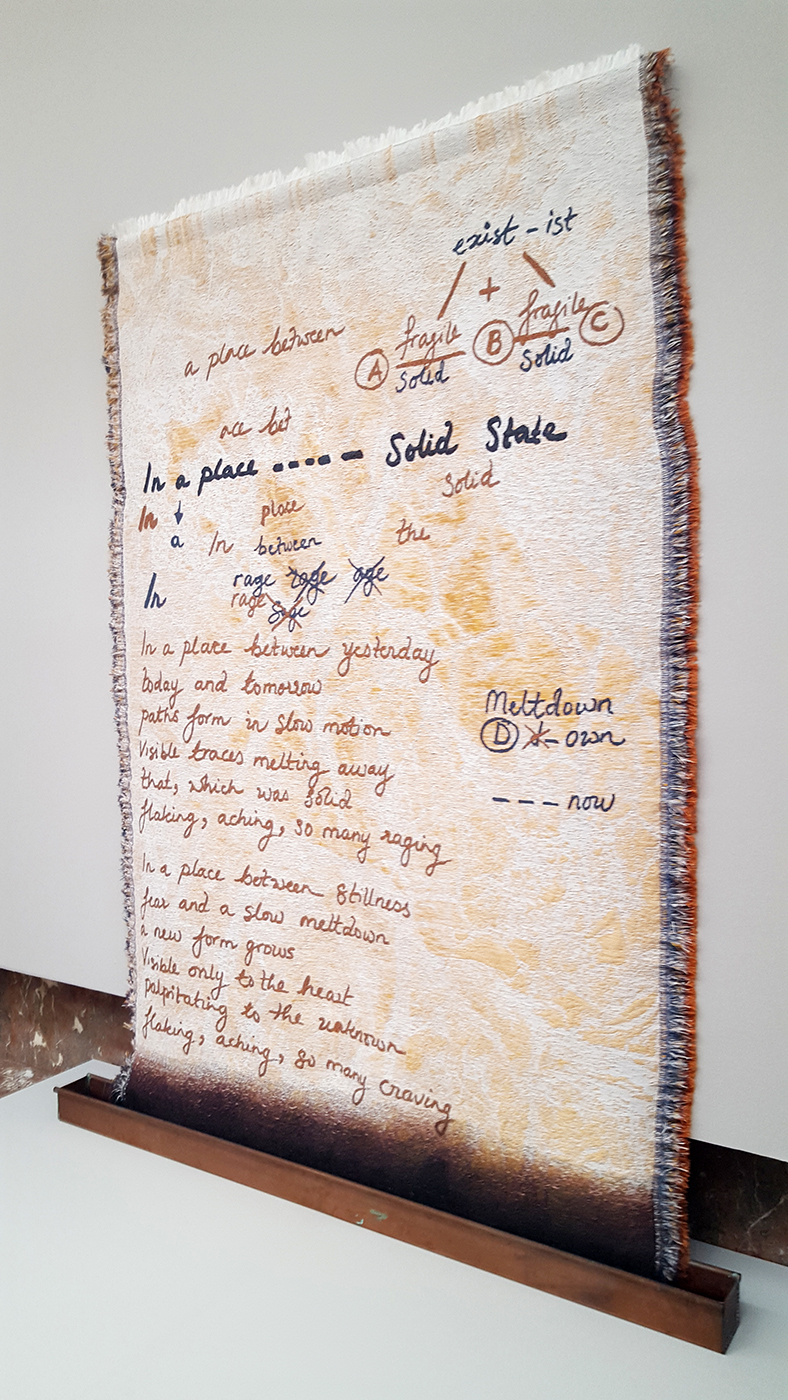 exist - ist
+
a place between
A fragile B fragile C
Solid Solid
ace bet
In a place ----- Solid State
In place Solid
a In between the
In rage rage age
rage Sage
In a place between yesterday
today and tomorrow
paths form in slow motion
Visible traces melting away
that, which was solid
flaking, aching, so many raging
Meltdown
D d-own
--- now
In a place between Stillness
fear and a slow meltdown
a new form grows
Visible only to the heart
palpitating to the unknown
flaking, aching, so many craving